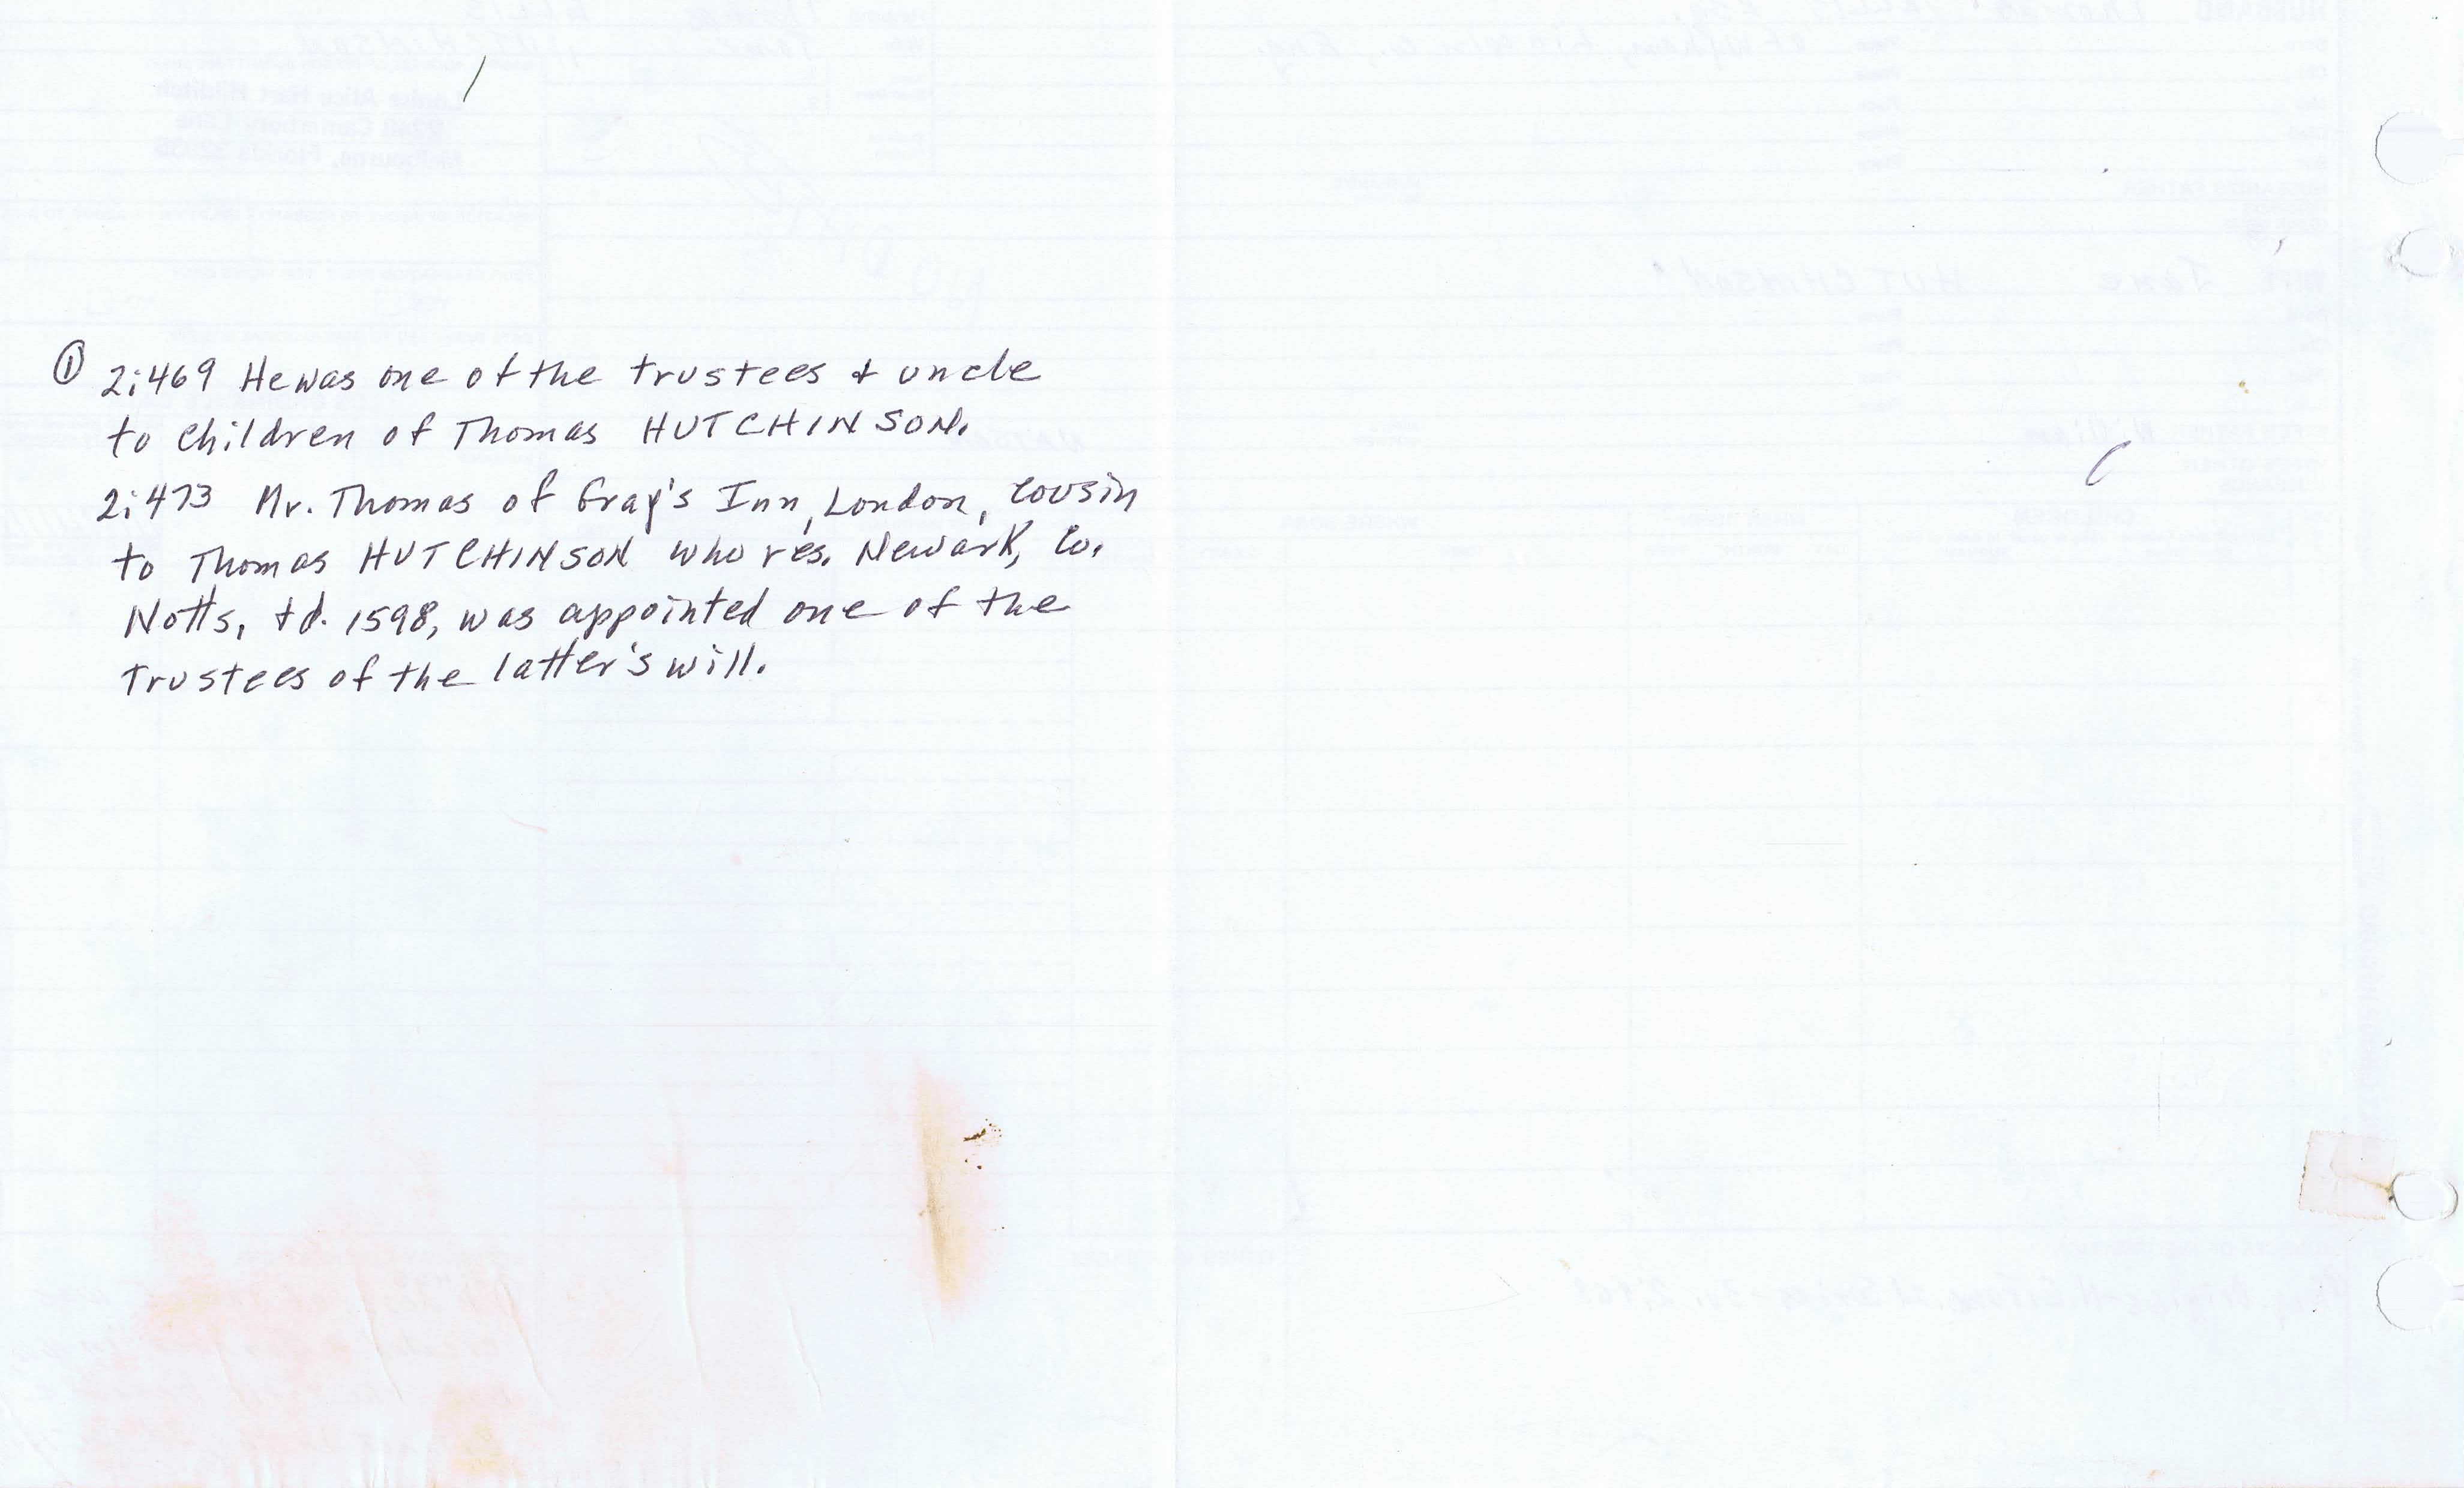 ① 2:469 He was one of the trustees & uncle
to children of Thomas HUTCHINSON.
2:473 Mr. Thomas of Gray's Inn, London, cousin
to Thomas HUTCHINSON who res. Newark, Co.
Notts, & d. 1598, was appointed one of the
trustees of the latter's will.